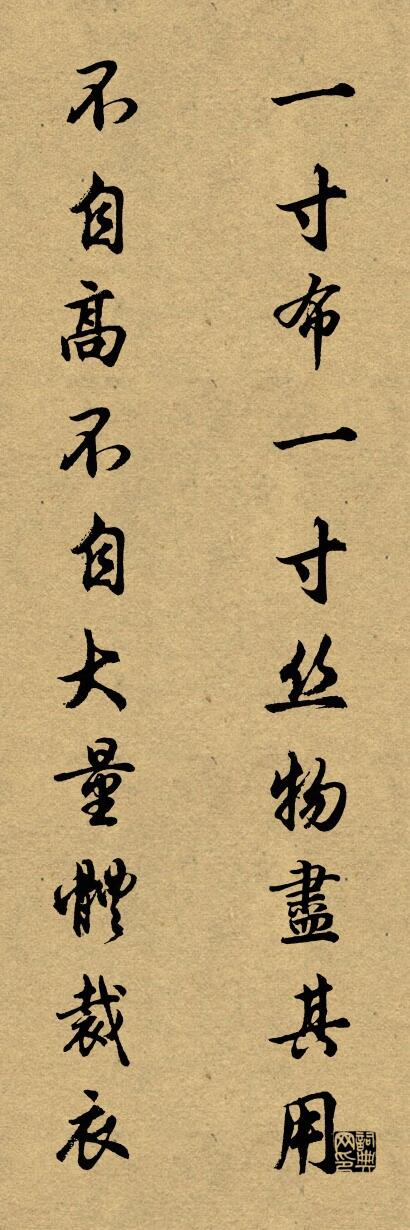 一寸布一寸丝物盡其用
不自高不自大量體裁衣
詞典网印